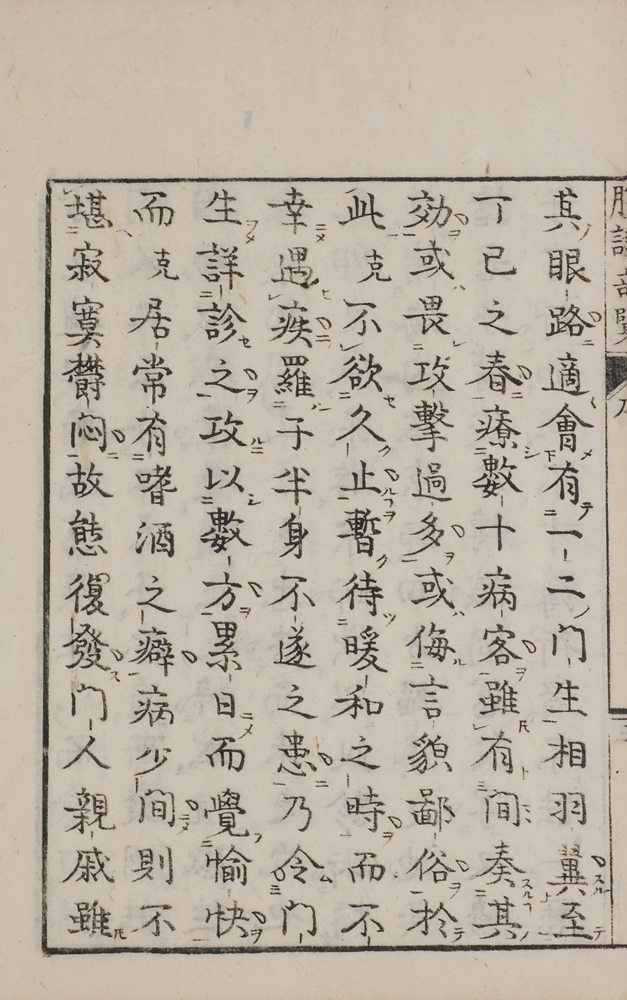 其眼路適會有一二門生相羽翼至
丁巳之春療數十病客雖有間奏其
効或畏攻擊過多或侮言貌鄙俗於
此克不欲久止暫待暖和之時而不
幸遇疾羅子半身不遂之患乃令門
生詳診之攻以數方累日而覺愉快
而克居常有嗜酒之癖病少間則不
堪寂寞欝悶故態復發門人親戚雖